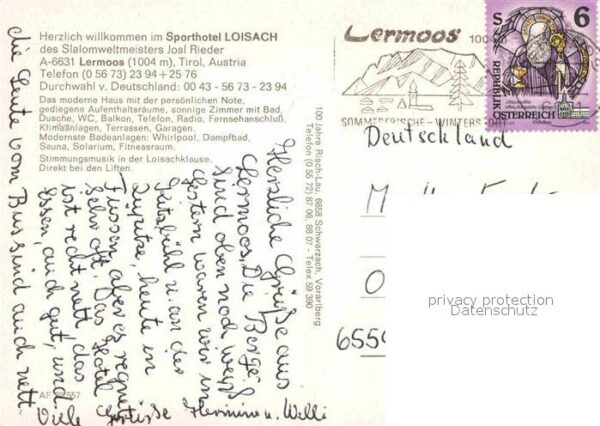 Herzlich willkommen im Sporthotel LOISACH
des Slalomweltmeisters Josl Rieder
A-6631 Lermoos (1004 m), Tirol, Austria
Telefon (0 56 73) 23 94 + 25 76
Durchwahl v. Deutschland: 00 43 - 56 73 - 23 94
Das moderne Haus mit der persönlichen Note,
gediegene Aufenthaltsräume, sonnige Zimmer mit Bad,
Dusche, WC, Balkon, Telefon, Radio, Fernsehanschluß,
Klimaanlagen, Terrassen, Garagen.
Modernste Badeanlagen: Whirlpool, Dampfbad,
Sauna, Solarium, Fitnessraum.
Stimmungsmusik in der Loisachklause.
Direkt bei den Liften.
Herzliche Grüße aus
Lermoos. Die Berge
sind oben noch weiß
Gestern waren wir in
Kitzbühl u. an der
heute in
Füssen, aber es regnet
sehr oft. Das Hotel
ist recht nett, das
Essen auch gut, und
die Leute vom Bus sind auch nett.
Viele Grüße Hermine u. Willi
100 Jahre Risch-Lau, 6858 Schwarzach, Vorarlberg
Telefon (0 55 72) 87 06 88 07 - Telex 59 390
Lermoos
SOMMERFRISCHE - WINTERSPORT
S 6
REPUBLIK
ÖSTERREICH
Deutschland
O
6559
privacy protection
Datenschutz